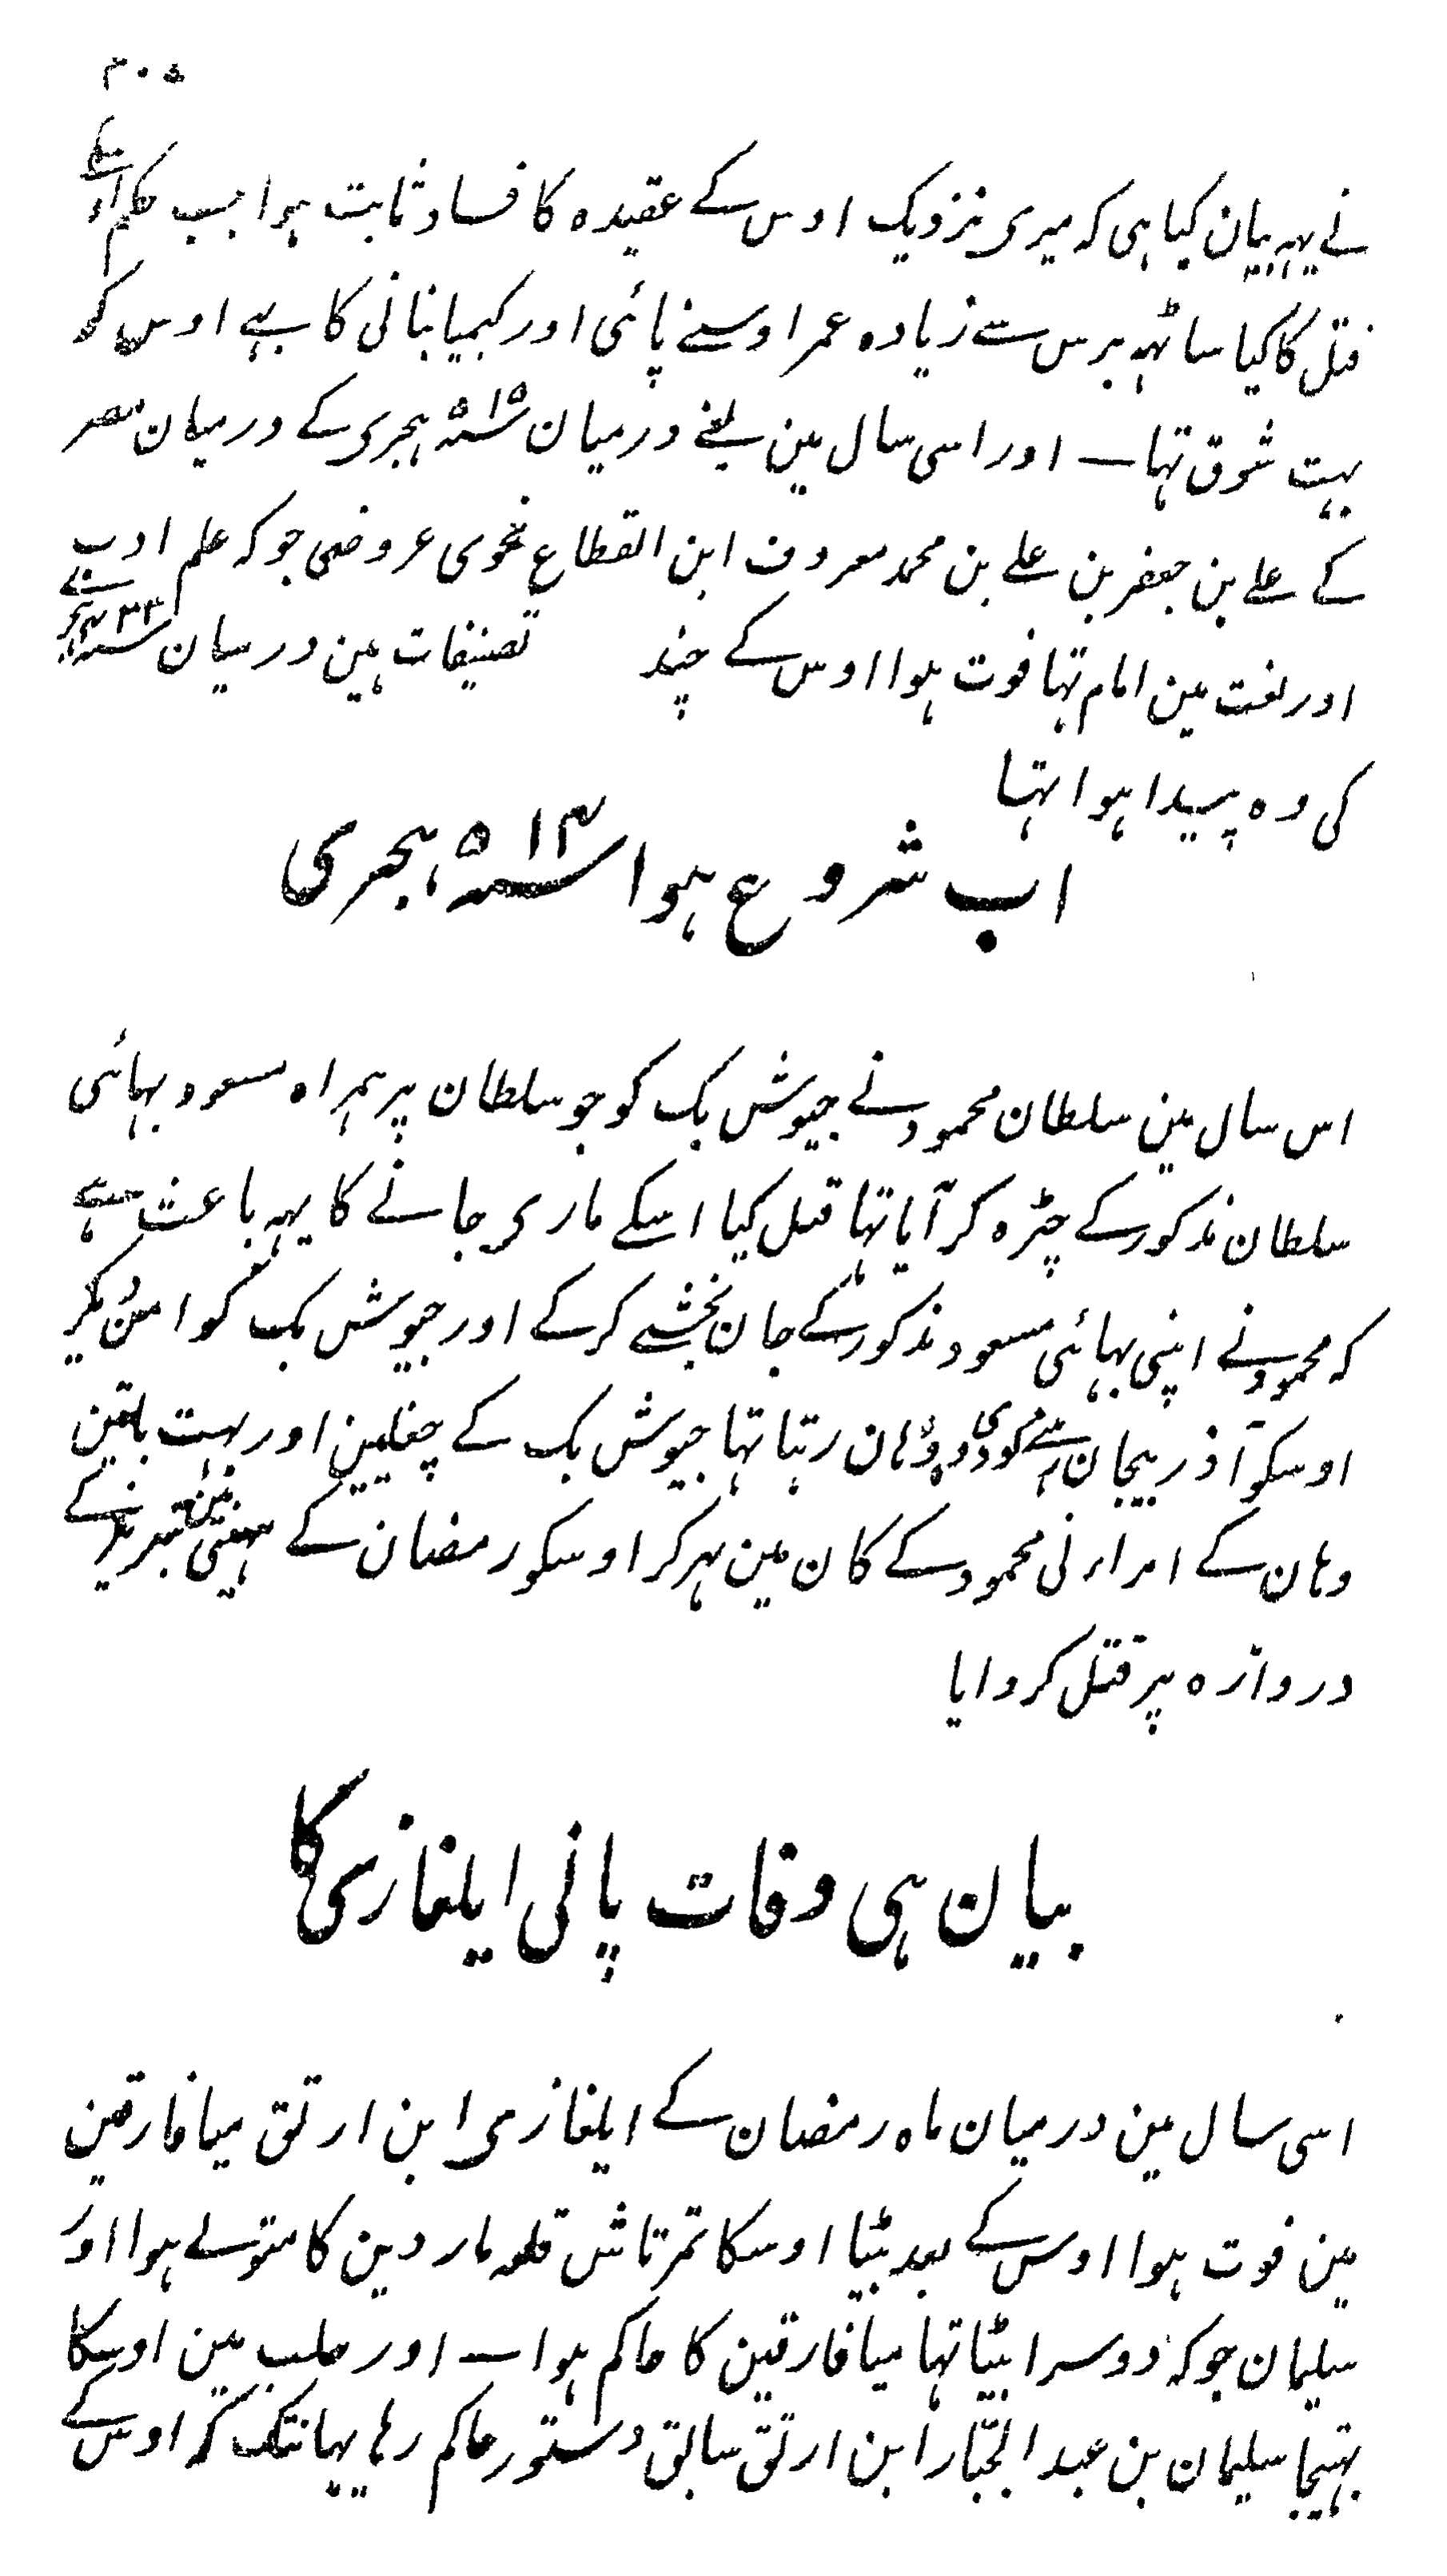 ۳۰۵
نے یہہ بیان کیا ہی کہ میری نزدیک اوس کے عقیدہ کا فساد ثابت ہوا بسب حکم اوسکے
قتل کا کیا ساٹہہ برس سے زیادہ عمر اوسنے پائی اور کیمیا بنانی کا ہے اوس کو
بہت شوق تہا ــ اور اسی سال مین یعنے درمیان ۵۱۵ ہجری کے درمیان مصر
کے علے بن جعفر بن علے بن محمد معروف ابن القطاع نحوی عروضی جو کہ علم ادب
اور لغت مین امام تہا فوت ہوا اوس کے چند تصنیفات ہین درمیان ۴۳۳ ہجری
کی وہ پیدا ہوا تہا
اب شروع ہوا ۵۱۴ ہجری
اس سال مین سلطان محمود نے جیوش بک کو جو سلطان پر ہمراہ مسعود بہائی
سلطان مذکور کے چڑہ کر آیا تہا قتل کیا اسکے ماری جانے کا یہہ باعث ہے
کہ محمود نے اپنی بہائی مسعود مذکور کے جان بخشے کر کے اور جیوش بک کو امن دیکر
اوسکو آذربیجان کودی وہ وہان رہتا تہا جیوش بک کے چغلیین اور بہت باتین
وہان کے امراء نی محمود کے کان مین بہر کر اوسکو رمضان کے مہینی مین تبریز کے
دروازہ پر قتل کروایا
بیان ہی وفات پانی ایلغازی کا
اسی سال مین درمیان ماہ رمضان کے ایلغازی ابن ارتق میافارقین
مین فوت ہوا اوس کے بعد بیٹا اوسکا تمرتاش قلعہ ماردین کا متولے ہوا اور
سلیمان جو کہ دوسرا بیٹا تہا میافارقین کا حاکم ہوا ــ اور حلب مین اوسکا
بہتیجا سلیمان بن عبد الجبار ابن ارتق سابق دستور حاکم رہا یہانتک کہ اوس کے